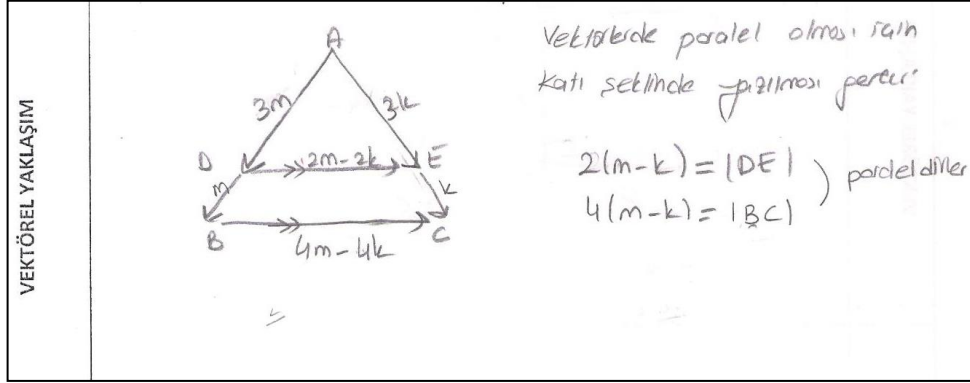 VEKTÖREL YAKLAŞIM
A
3m
3k
D
2m-2k
E
m
k
B
4m-4k
C
Vektörlerde paralel olması için
katı şeklinde yazılması gerekir
2(m-k) = |DE|
4(m-k) = |BC|
) paraleldirler